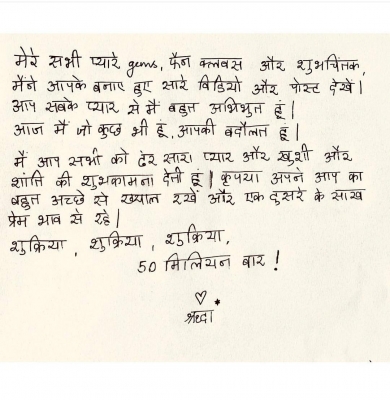 मेरे सभी प्यारे gems, फैन क्लबस और शुभचिंतक,
मैंने आपके बनाए हुए सारे विडियो और पोस्ट देखें।
आप सबके प्यार से मैं बहुत अभिभुत हूं।
आज मैं जो कुछ भी हूं, आपकी बदौलत हूं।
मैं आप सभी को ढेर सारा प्यार और खुशी और
शांति की शुभकामना देती हूं। कृपया अपने आप का
बहुत अच्छे से ख्याल रखें और एक दुसरे के साथ
प्रेम भाव से रहे।
शुक्रिया, शुक्रिया, शुक्रिया,
50 मिलियन बार!
♡
श्रद्धा